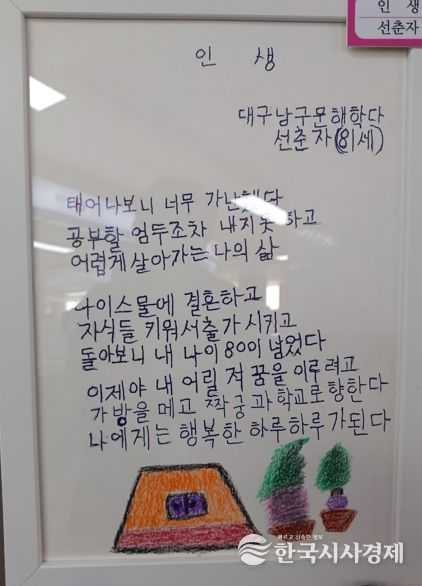 인 생
선춘자
인 생
대구남구문해학다
선춘자(81세)
태어나보니 너무 가난했다
공부할 엄두조차 내지못 하고
어렵게살아가는나의 삶
나이스물에 결혼하고
자식들 키워서출가시키고
돌아보니 내 나이80이 넘었다
이제야 내 어릴 적 꿈을 이루려고
가방을 메고 짝궁과학교로향한다
나에게는 행복한 하루하루가된다
빠르고 신속한 정보
한국시사경제